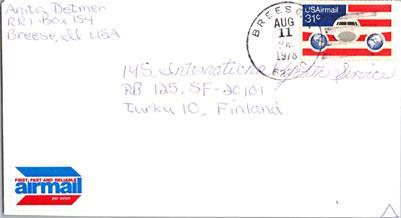 Anita Detmer
RR1 Box 154
Breese, Il USA
BREESE
AUG
11
PM
1978
USAirmail
31c
IYS, International Youth Service
PB 125, SF-20101
Turku 10, Finland
FIRST, FAST AND RELIABLE
airmail